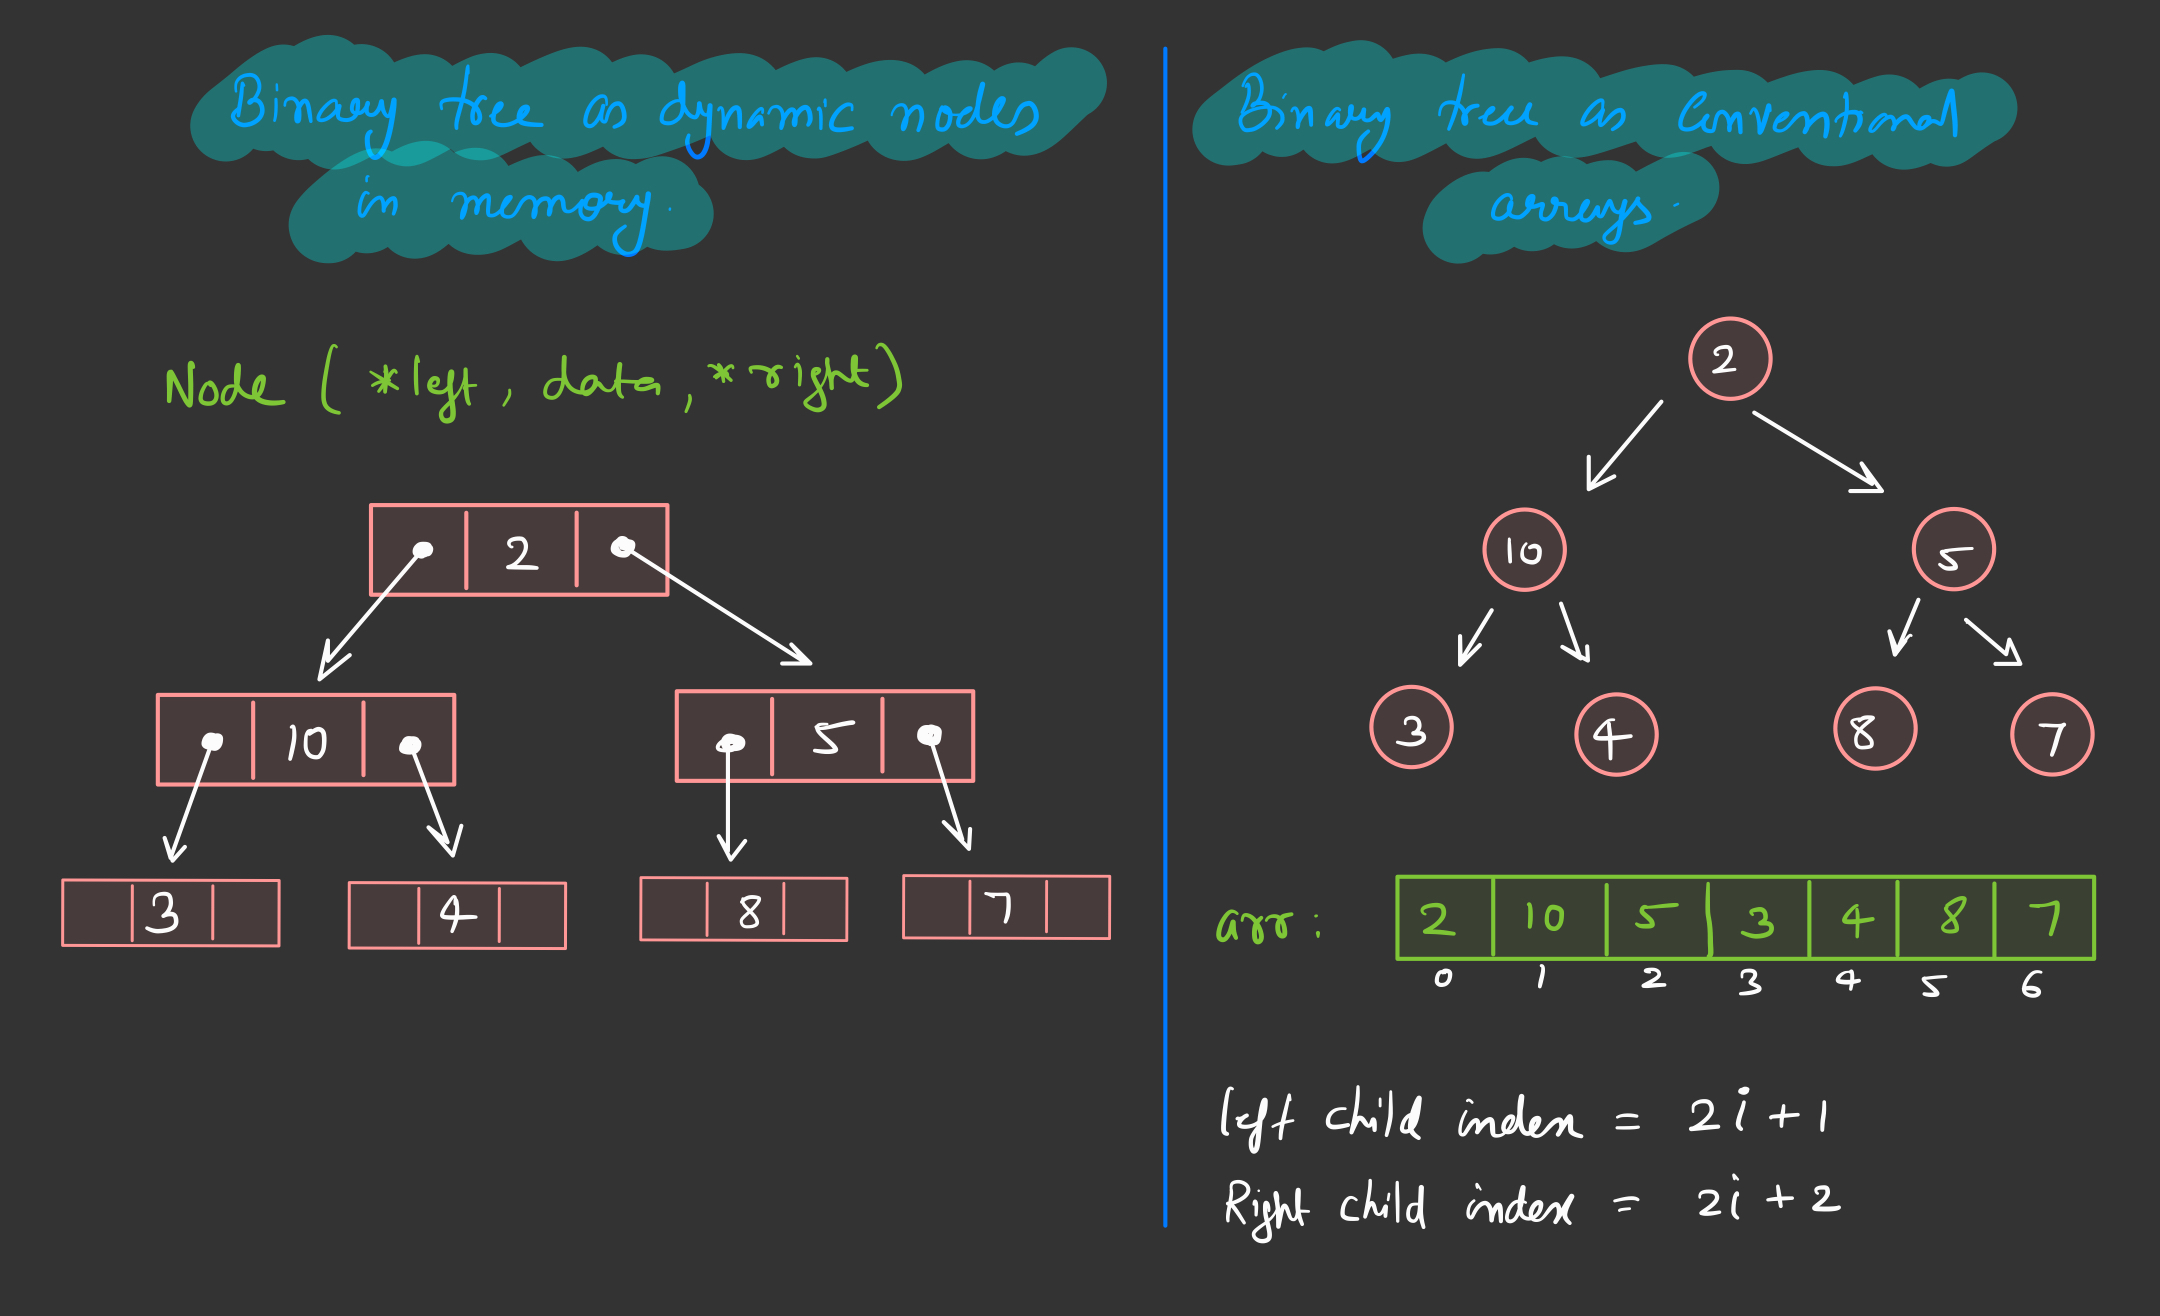 Binary tree as dynamic nodes
in memory.
Node ( *left, data, *right)
2
10 5
3 4 8 7
Binary tree as Conventional
arrays.
2
10 5
3 4 8 7
arr: 2 10 5 3 4 8 7
0 1 2 3 4 5 6
left child index = 2i+1
Right child index = 2i+2